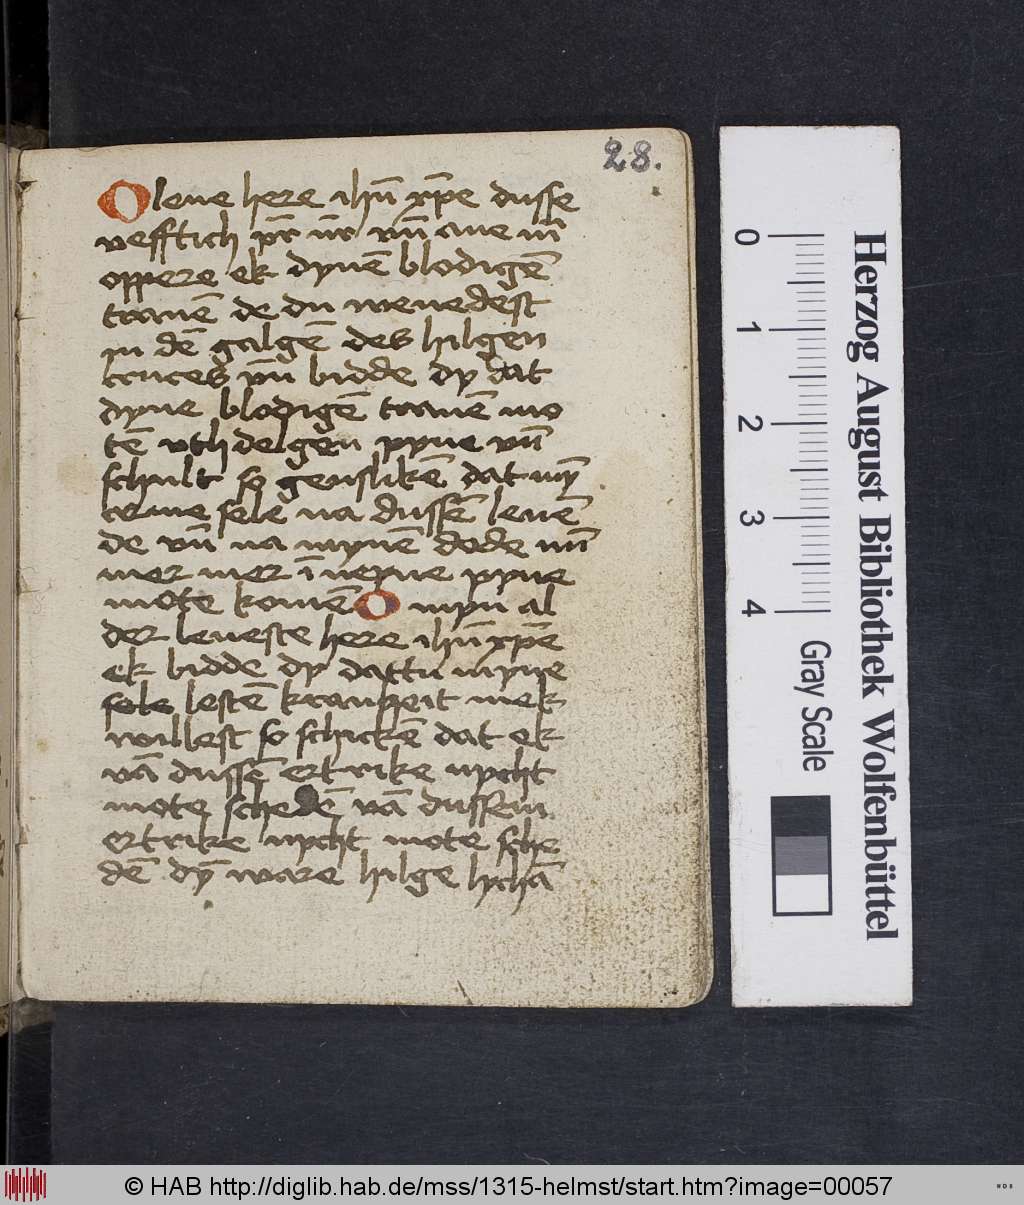 28.
O leue here ihū xp̄e dusse
vefftich pr̄ nr̄ vn̄ aue mā
oppere ek dynē blodigē
tranē de du weuedest
in dē galgē des hilgen
cruces vn̄ bidde dy dat
dyne blodigē tranē mo
tē vth delgen pyne vn̄
schult so genslikē dat mȳ
erme sele na dussē leuē
de vn̄ na mynē dode nū
mer mer ī neyne pyne
mote komē O myn al
der leueste here ihū xp̄e
ek bidde dy dattu myne
sele lestē krancheit mek
willest so schickē dat ek
vā dussē ertrike nycht
mote schedē vā dussem
ertrike nycht mote sche
dē dȳ ware hilge lychā
Herzog August Bibliothek Wolfenbüttel
0 1 2 3 4
Gray Scale
© HAB http://diglib.hab.de/mss/1315-helmst/start.htm?image=00057